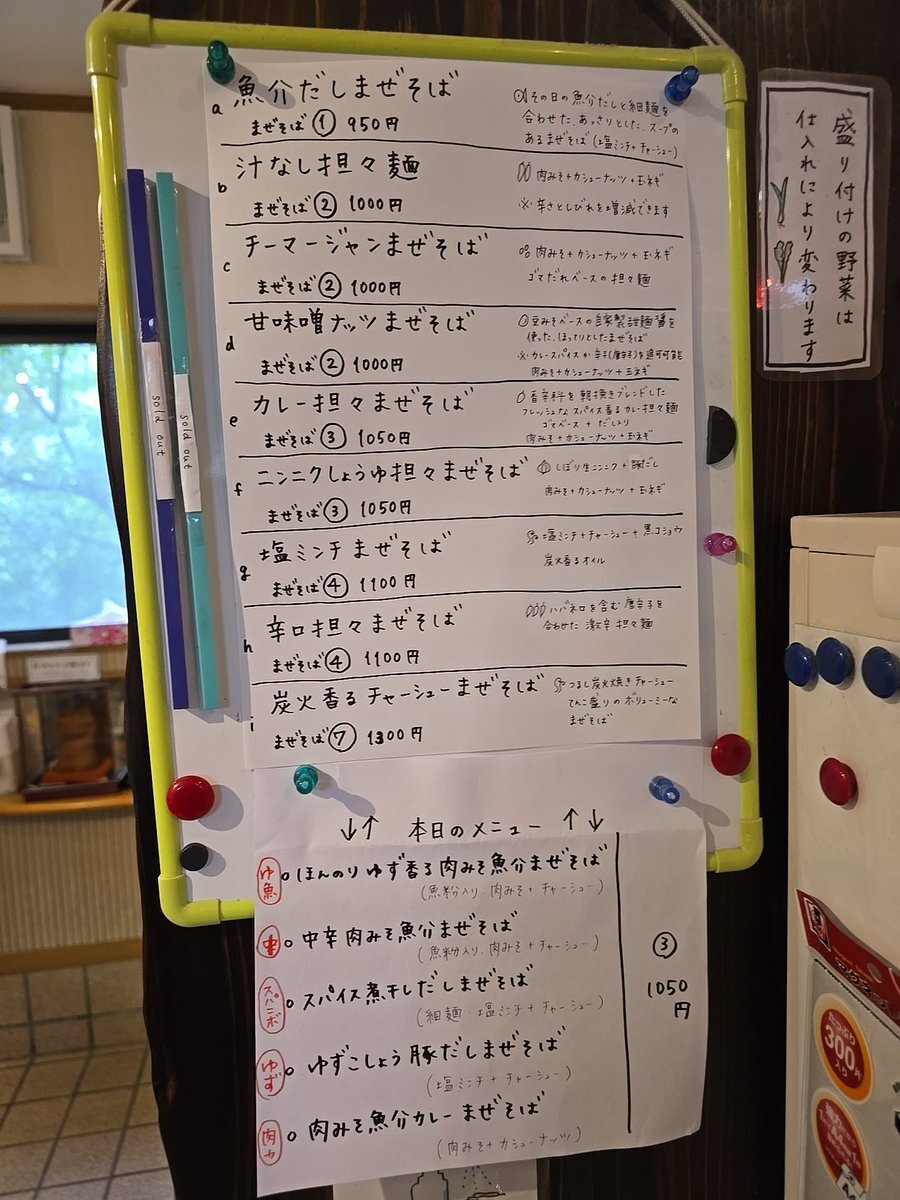 a 魚介だしまぜそば
まぜそば① 950円
その日の魚介だしと細麺を
合わせた、あっさりとした、スープの
あるまぜそば(塩ミンチ+チャーシュー)
b 汁なし担々麺
まぜそば② 1000円
肉みそ+カシューナッツ+玉ネギ
※辛さとしびれを増減できます
c チーマージャンまぜそば
まぜそば② 1000円
肉みそ+カシューナッツ+玉ネギ
ゴマだれベースの担々麺
d 甘味噌ナッツまぜそば
まぜそば② 1000円
豆みそベースの自家製甜麺醤を
使った、ほってりとしたまぜそば
※カレースパイスか辛子(唐辛子)を追可可能
肉みそ+カシューナッツ+玉ネギ
e カレー担々まぜそば
まぜそば③ 1050円
香辛料を朝挽きブレンドした
フレッシュなスパイス香るカレー担々麺
ゴマベース+だし入り
肉みそ+カシューナッツ+玉ネギ
f ニンニクしょうゆ担々まぜそば
まぜそば③ 1050円
しぼり生ニンニク+豚だし
肉みそ+カシューナッツ+玉ネギ
g 塩ミンチまぜそば
まぜそば④ 1100円
塩ミンチ+チャーシュー+黒コショウ
炭火香るオイル
h 辛口担々まぜそば
まぜそば④ 1100円
ハバネロを含む唐辛子を
合わせた激辛担々麺
i 炭火香るチャーシューまぜそば
まぜそば⑦ 1300円
つるし炭火焼きチャーシュー
てんこ盛りのボリューミーな
まぜそば
sold out
sold out
盛り付けの野菜は
仕入れにより変わります
↓↑ 本日のメニュー ↑↓
ゆ魚 ○ほんのりゆず香る肉みそ魚介まぜそば
(魚粉入り・肉みそ+チャーシュー)
中 ○中辛肉みそ魚介まぜそば
(魚粉入り・肉みそ+チャーシュー)
スパニボ ○スパイス煮干しだしまぜそば
(細麺・塩ミンチ+チャーシュー)
ゆず ○ゆずこしょう豚だしまぜそば
(塩ミンチ+チャーシュー)
肉カ ○肉みそ魚介カレーまぜそば
(肉みそ+カシューナッツ)
③
1050
円
たっぷり
300片
入り